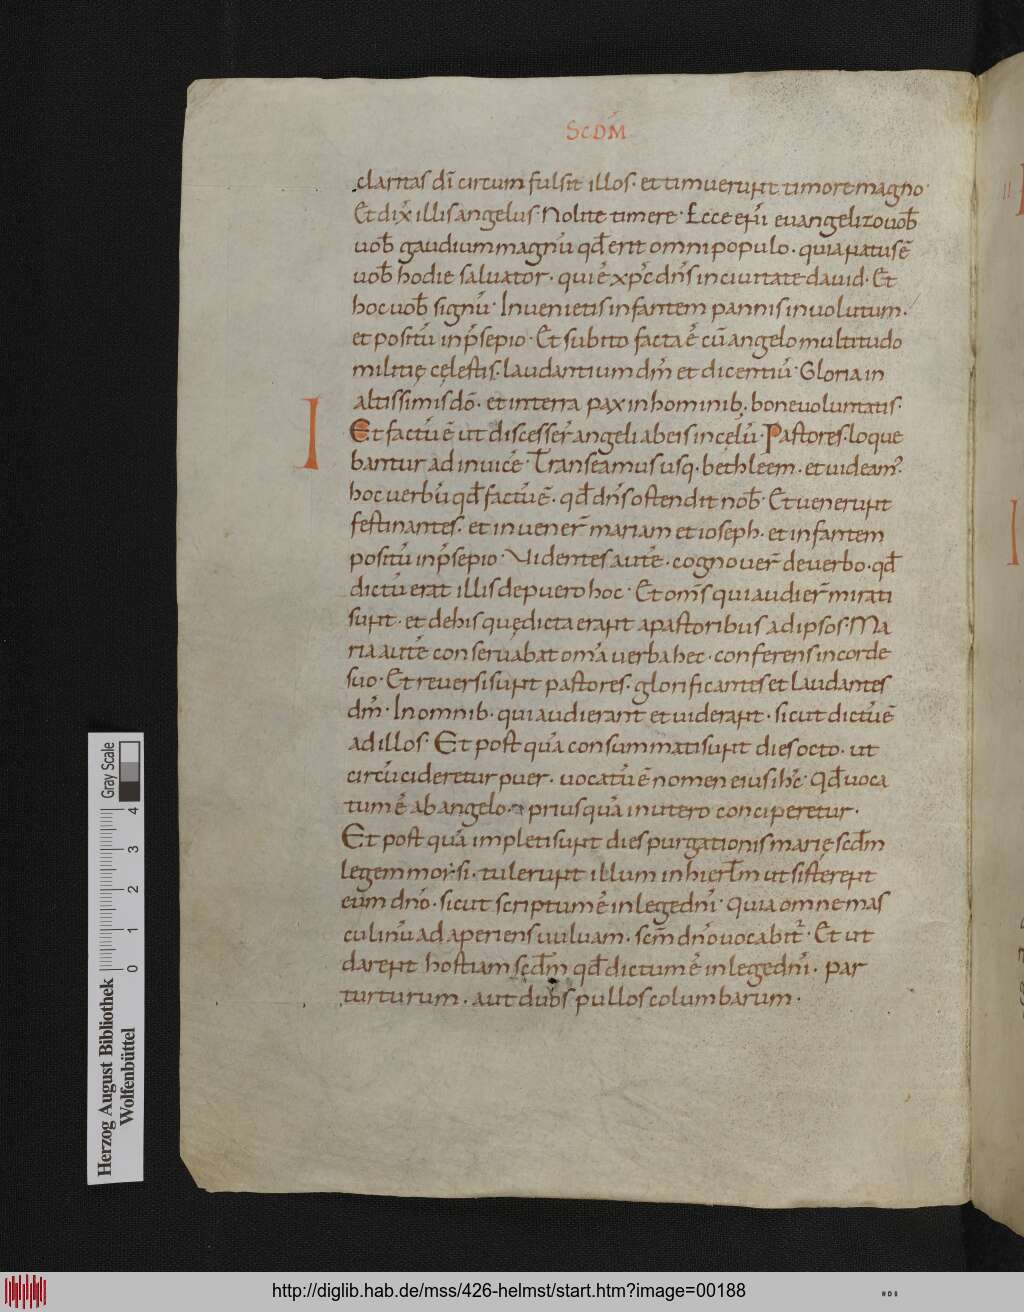 SCDM̅
claritas di̅ circum fulsit illos· et timuerunt timore magno·
Et dix̅ illis angelus· Nolite timere· Ecce eni̅ euangelizo uob̅
uob̅ gaudium magnu̅ qd̅ erit omni populo· quia natus e̅
uob̅ hodie saluator· qui e̅ xp̅c dn̅s in ciuitate dauid· Et
hoc uob̅ signu̅· Inuenietis infantem pannis inuolutum·
et positu̅ in p̅sepio· Et subito facta e̅ cu̅ angelo multitudo
militię cęlestis· laudantium dm̅ et dicentiu̅· Gloria in
altissimis do̅· et in terra pax in hominib; bone uoluntatis·
I Et factu̅ e̅ ut discesser̅ angeli ab eis in cęlu̅· Pastores· loque
bantur ad inuice̅· Transeamus usq; bethleem· et uideam᾽·
hoc uerbu̅ qd̅ factu̅ e̅· qd̅ dn̅s ostendit nob̅· Et uenerunt
festinantes· et inuener̅ mariam et ioseph· et infantem
positu̅ in p̅sepio· Videntes aute̅· cognouer̅ de uerbo· qd̅
dictu̅ erat illis de puero hoc· Et om̅s qui audier̅ mirati
sunt· et de his quę dicta erant a pastoribus ad ipsos· Ma
ria aute̅ conseruabat om̅a uerba hec· conferens in corde
suo· Et reuersi sunt pastores· glorificantes et laudantes
dm̅· In omnib; qui audierant et uiderant· sicut dictu̅ e̅
ad illos· Et post qua̅ consummati sunt dies octo· ut
circu̅cideretur puer· uocatu̅ e̅ nomen eius ih̅c· Qd̅ uoca
tum e̅ ab angelo· priusqua̅ in utero conciperetur·
Et post qua̅ impleti sunt dies purgationis marię scd̅m
legem moysi· tulerunt illum in hierl̅m ut sisterent
eum dn̅o· sicut scriptum e̅ in lege dni̅· Quia omne mas
culinu̅ adaperiens uuluam· scm̅ dn̅o uocabit̅· Et ut
darent hostiam scd̅m qd̅ dictum e̅ in lege dni̅· par
turturum· aut duos pullos columbarum·
Herzog August Bibliothek
Wolfenbüttel
0 1 2 3 4
Gray Scale
http://diglib.hab.de/mss/426-helmst/start.htm?image=00188